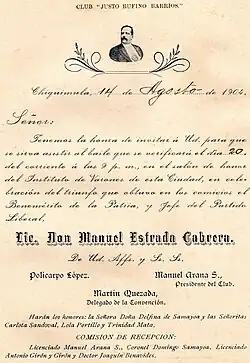 CLUB "JUSTO RUFINO BARRIOS."
Chiquimula, 14 de Agosto de 1904.
Señor:
Tenemos la honra de invitar á Ud. para que
se sirva asistir al baile que se verificará el día 20
del corriente á las 9 p. m., en el salón de honor
del Instituto de Varones de esta Ciudad, en cele-
bración del triunfo que obtuvo en los comicios el
Benemérito de la Patria, y Jefe del Partido
Liberal,
Lic. Don Manuel Estrada Cabrera.
De Ud. Affs. y Ss. Ss.
Policarpo López.
Manuel Arana S.,
Presidente del Club.
Martín Quezada,
Delegado de la Convención.
Harán los honores: la Señora Doña Delfina de Samayoa y las Señoritas:
Carlota Sandoval, Lola Portillo y Trinidad Mata.
COMISION DE RECEPCION:
Licenciado Manuel Arana S., Coronel Domingo Samayoa, Licenciado
Antonio Girón y Girón y Doctor Joaquín Benavides.